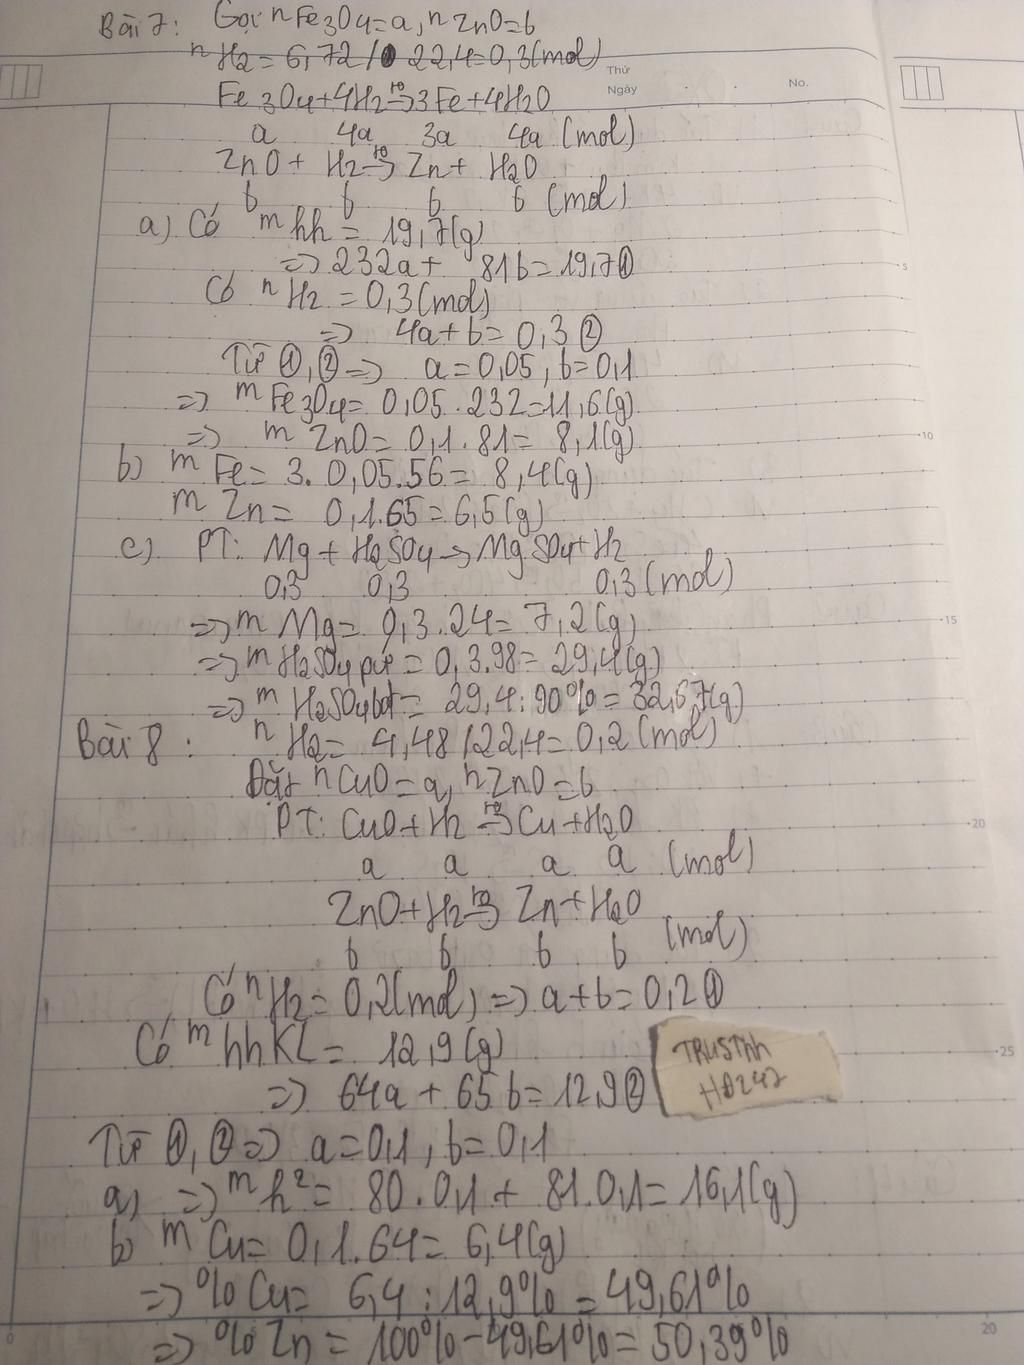 Bài 7: Gọi nFe3O4=a, nZnO=b
nH2=6,72/22,4=0,3(mol)
Thứ
Ngày No.
Fe3O4+4H2 to→ 3Fe+4H2O
a 4a 3a 4a (mol)
ZnO+ H2 to→ Zn+ H2O
b b b b (mol)
a) Có mhh = 19,7(g)
=> 232a+ 81b=19,7①
Có nH2 = 0,3(mol)
=> 4a+b=0,3②
Từ ①,② => a=0,05, b=0,1
=> mFe3O4= 0,05.232=11,6(g)
=> mZnO= 0,1.81= 8,1(g)
b) mFe= 3.0,05.56= 8,4(g)
mZn= 0,1.65=6,5(g)
c) PT: Mg+H2SO4→MgSO4+H2
0,3 0,3 0,3(mol)
=> mMg= 0,3.24= 7,2(g)
=> mH2SO4pư = 0,3.98= 29,4(g)
=> mH2SO4bđ= 29,4:90%=32,67(g)
Bài 8: nH2= 4,48/22,4=0,2(mol)
Đặt nCuO=a, nZnO=b
PT: CuO+H2 to→ Cu+H2O
a a a a (mol)
ZnO+H2 to→ Zn+H2O
b b b b (mol)
Có nH2=0,2(mol)=> a+b=0,2①
Có mhhKL= 12,9(g)
=> 64a+65b=12,9②
TRUSThh
HĐ247
Từ ①,②=> a=0,1, b=0,1
a) => mh2= 80.0,1+ 81.0,1=16,1(g)
b) mCu= 0,1.64= 6,4(g)
=> %Cu= 6,4:12,9%=49,61%
=> %Zn= 100%-49,61%=50,39%
5
10
15
20
25
0
20